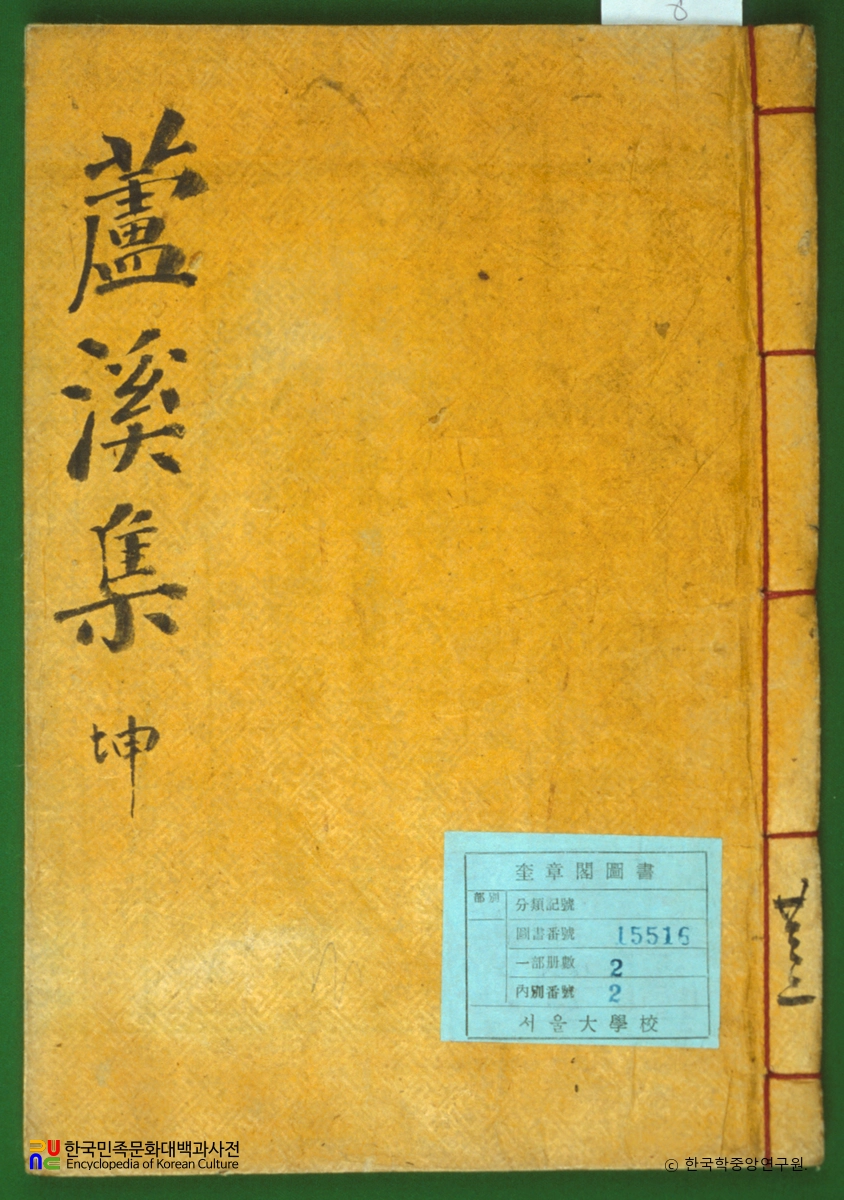 蘆溪集 坤
奎章閣圖書
部別
分類記號
圖書番號 15516
一部册數 2
內別番號 2
서울大學校
共二
한국민족문화대백과사전
Encyclopedia of Korean Culture
© 한국학중앙연구원.